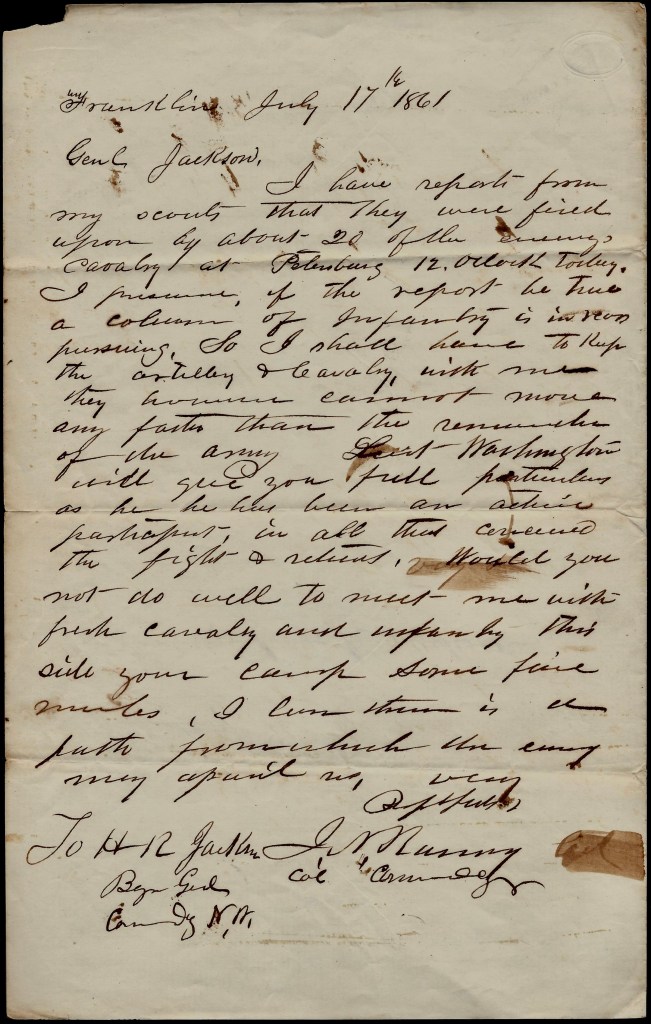 Franklin July 17th 1861
Genl Jackson,
I have reports from
my scouts that they were fired
upon by about 20 of the enemys
Cavalry at Petersburg 12. Oclock today.
I presume, if the report be true
a column of Infantry is in
pursuing, So I shall have to keep
the artillery & Cavalry, with me
they however cannot move
any faster than the remainder
of the army Lieut Washington
will give you full particulars
as he has been an active
in all that concerned
the fight & retreat, Would you
not do well to meet me with
fresh cavalry and infantry this
side your camp some five
miles, I learn there is a
path from which the enemy
may us, very
To H R Jackson J N Ramsey
Col Commdg
Brgr Genl
Comndg N, W,